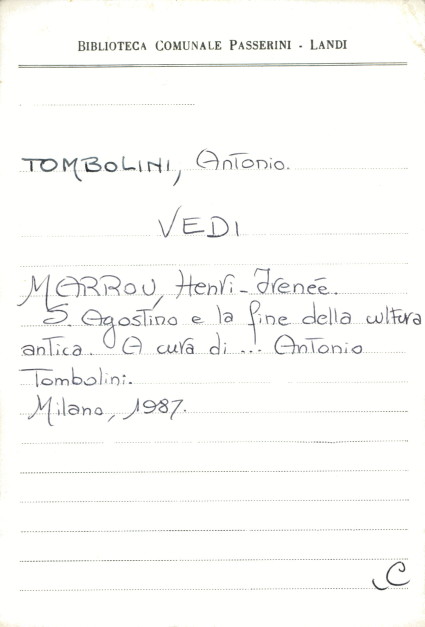 BIBLIOTECA COMUNALE PASSERINI - LANDI
TOMBOLINI, Antonio.
VEDI
MARROU, Henri-Irenée.
S. Agostino e la fine della cultura
antica. A cura di ... Antonio
Tombolini.
Milano, 1987.
C